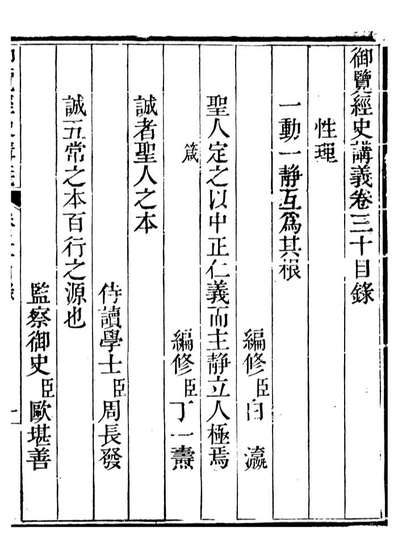 御覽經史講義卷三十目錄
性理
一動一靜互爲其根
編修臣白瀛
聖人定之以中正仁義而主靜立人極焉
編修臣丁一燾
誠者聖人之本
侍讀學士臣周長發
誠五常之本百行之源也
監察御史臣歐堪善